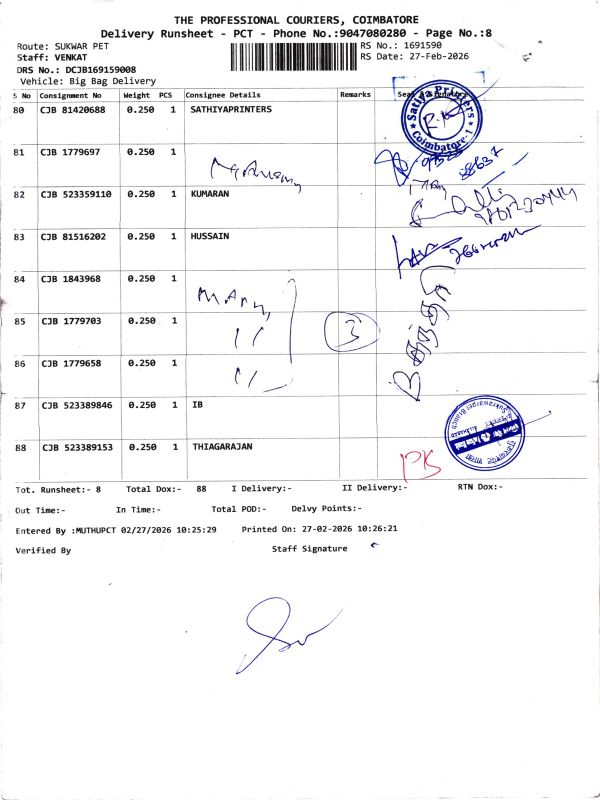 THE PROFESSIONAL COURIERS, COIMBATORE
Delivery Runsheet - PCT - Phone No.:9047080280 - Page No.:8
Route: SUKWAR PET
RS No.: 1691590
Staff: VENKAT
RS Date: 27-Feb-2026
DRS No.: DCJB169159008
Vehicle: Big Bag Delivery
S No Consignment No Weight PCS Consignee Details Remarks
80 CJB 81420688 0.250 1 SATHIYAPRINTERS
Satiya Printers
Coimbatore-1
81 CJB 1779697 0.250 1
82 CJB 523359110 0.250 1 KUMARAN
83 CJB 81516202 0.250 1 HUSSAIN
84 CJB 1843968 0.250 1
85 CJB 1779703 0.250 1 3
86 CJB 1779658 0.250 1
87 CJB 523389846 0.250 1 IB
88 CJB 523389153 0.250 1 THIAGARAJAN
Tot. Runsheet:- 8 Total Dox:- 88 I Delivery:- II Delivery:- RTN Dox:-
Out Time:- In Time:- Total POD:- Delvy Points:-
Entered By :MUTHUPCT 02/27/2026 10:25:29 Printed On: 27-02-2026 10:26:21
Verified By Staff Signature